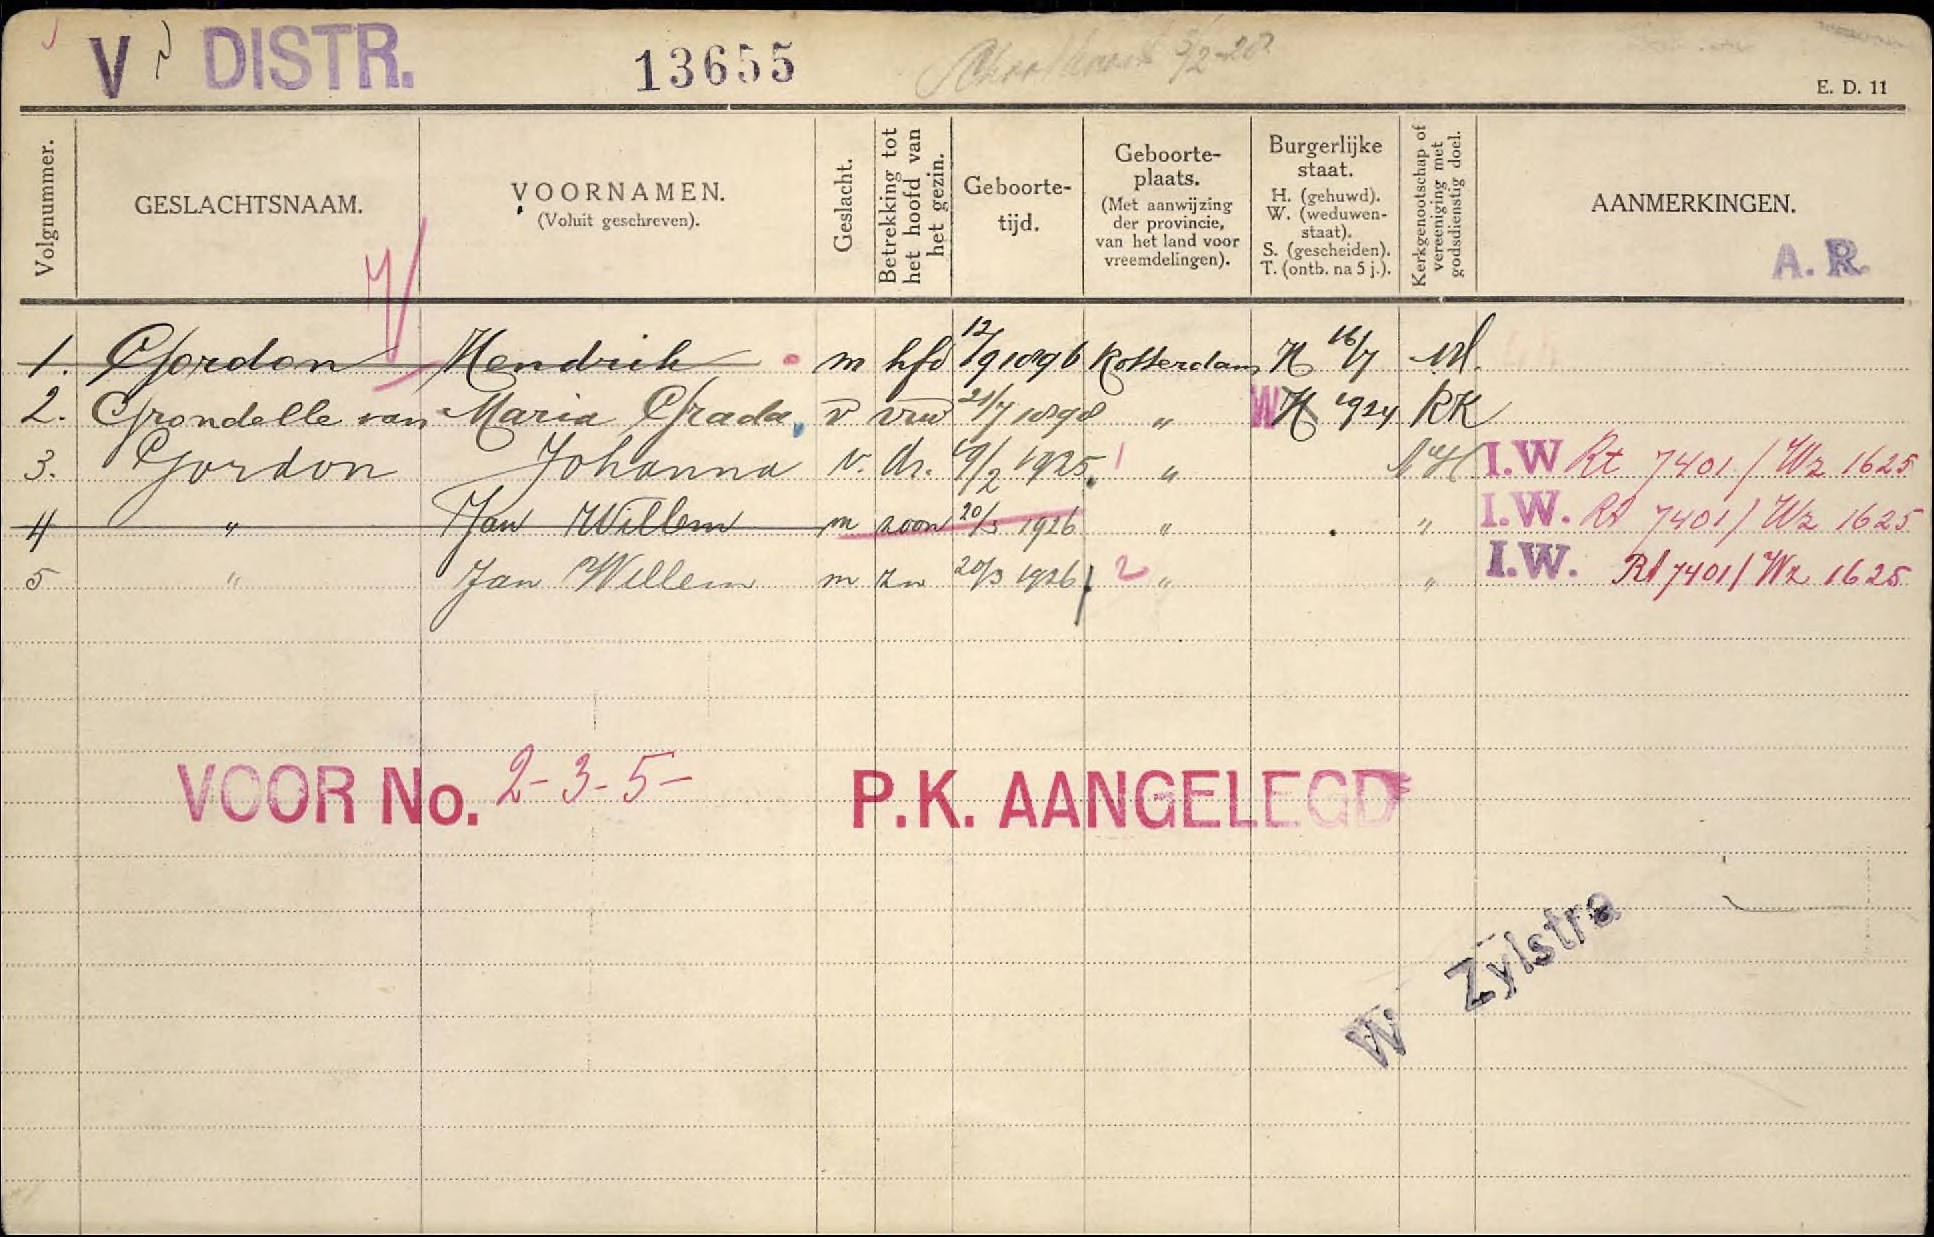 V DISTR. 13655
E. D. 11
Volgnummer.
GESLACHTSNAAM.
VOORNAMEN.
(Voluit geschreven).
Geslacht.
Betrekking tot
het hoofd van
het gezin.
Geboorte-
tijd.
Geboorte-
plaats.
(Met aanwijzing
der provincie,
van het land voor
vreemdelingen).
Burgerlijke
staat.
H. (gehuwd).
W. (weduwen-
staat).
S. (gescheiden).
T. (ontb. na 5 j.).
Kerkgenootschap of
vereeniging met
godsdienstig doel.
AANMERKINGEN.
A. R.
1. Gordon Hendrik m hfd 12/9 1896 Rotterdam H 16/7
2. Grondelle van Maria Grada v vrw 21/7 1898 " W H 1924 RK
3. Gordon Johanna v. dr. 19/2 1925 1 " NH I.W Rt 7401 / Wz 1625
4 " Jan Willem m zoon 20/3 1926 " " I.W. Rt 7401 / Wz 1625
5 " Jan Willem m zn 20/3 1926 2 " " I.W. Rt 7401 / Wz 1625
VOOR No. 2-3-5- P.K. AANGELEGD
W Zylstra